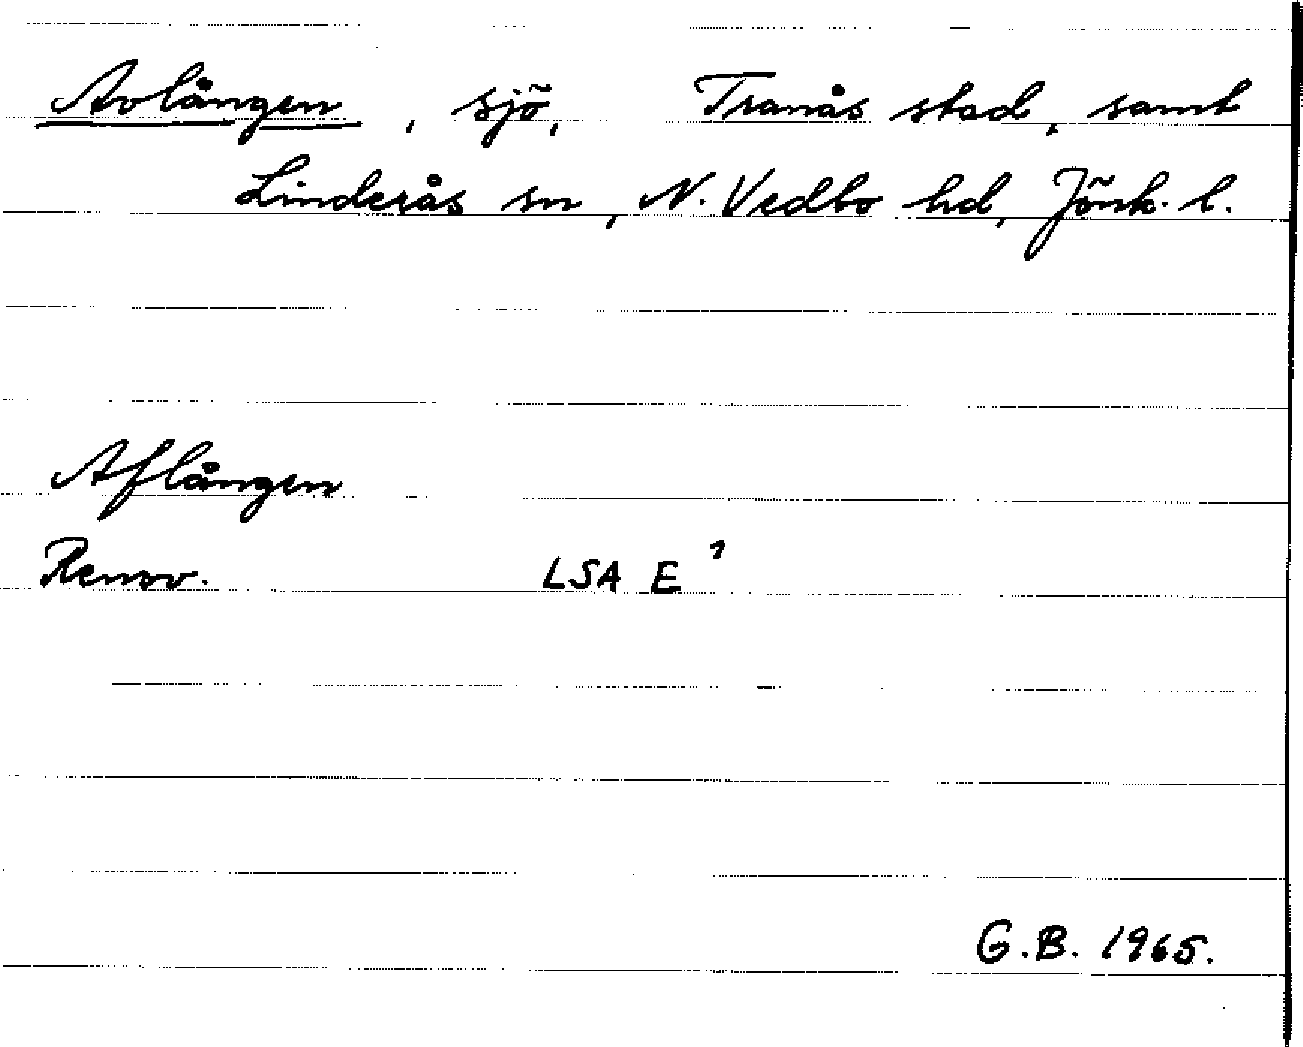 Avlången, sjö, Tranås stad, samt
Linderås sn, N. Vedbo hd, Jönk. l.
Aflången
Renov. LSA E¹
G.B. 1965.